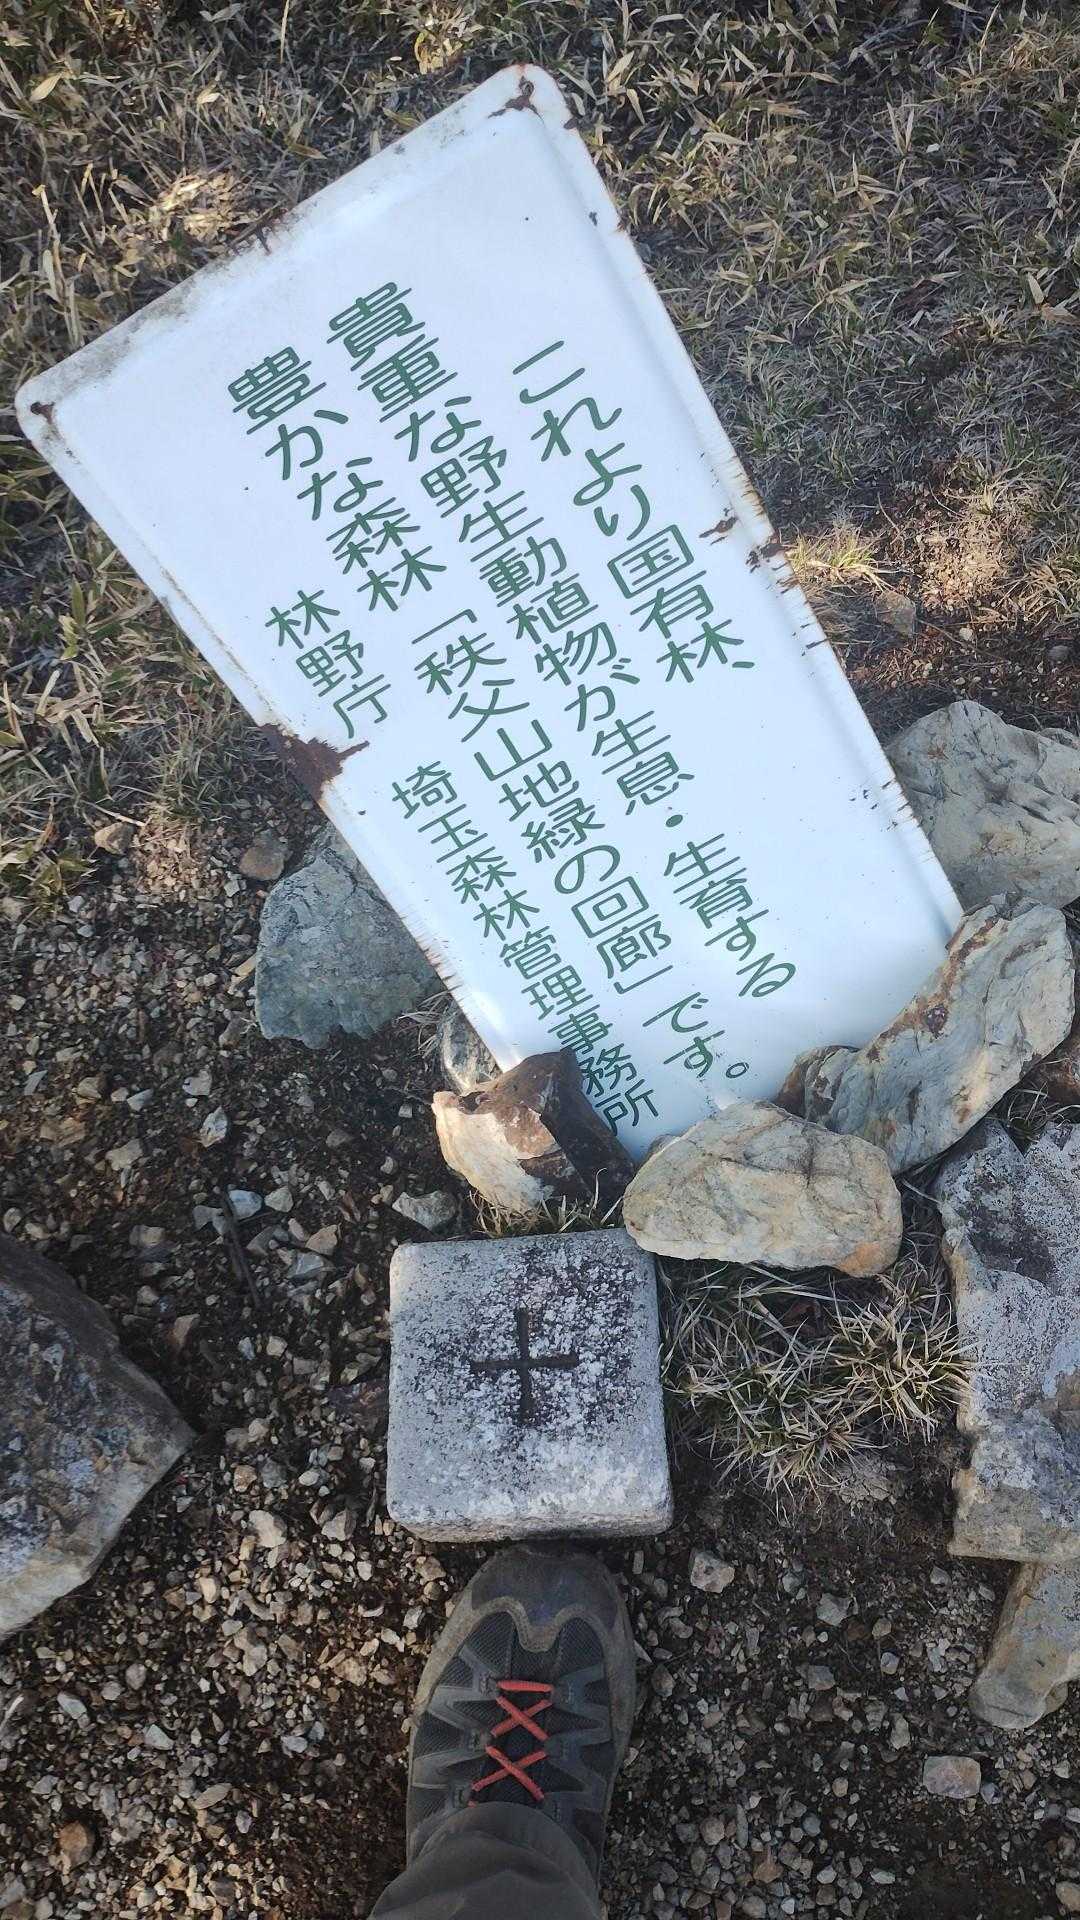 これより国有林、
貴重な野生動植物が生息・生育する
豊かな森林「秩父山地緑の回廊」です。
林野庁 埼玉森林管理事務所